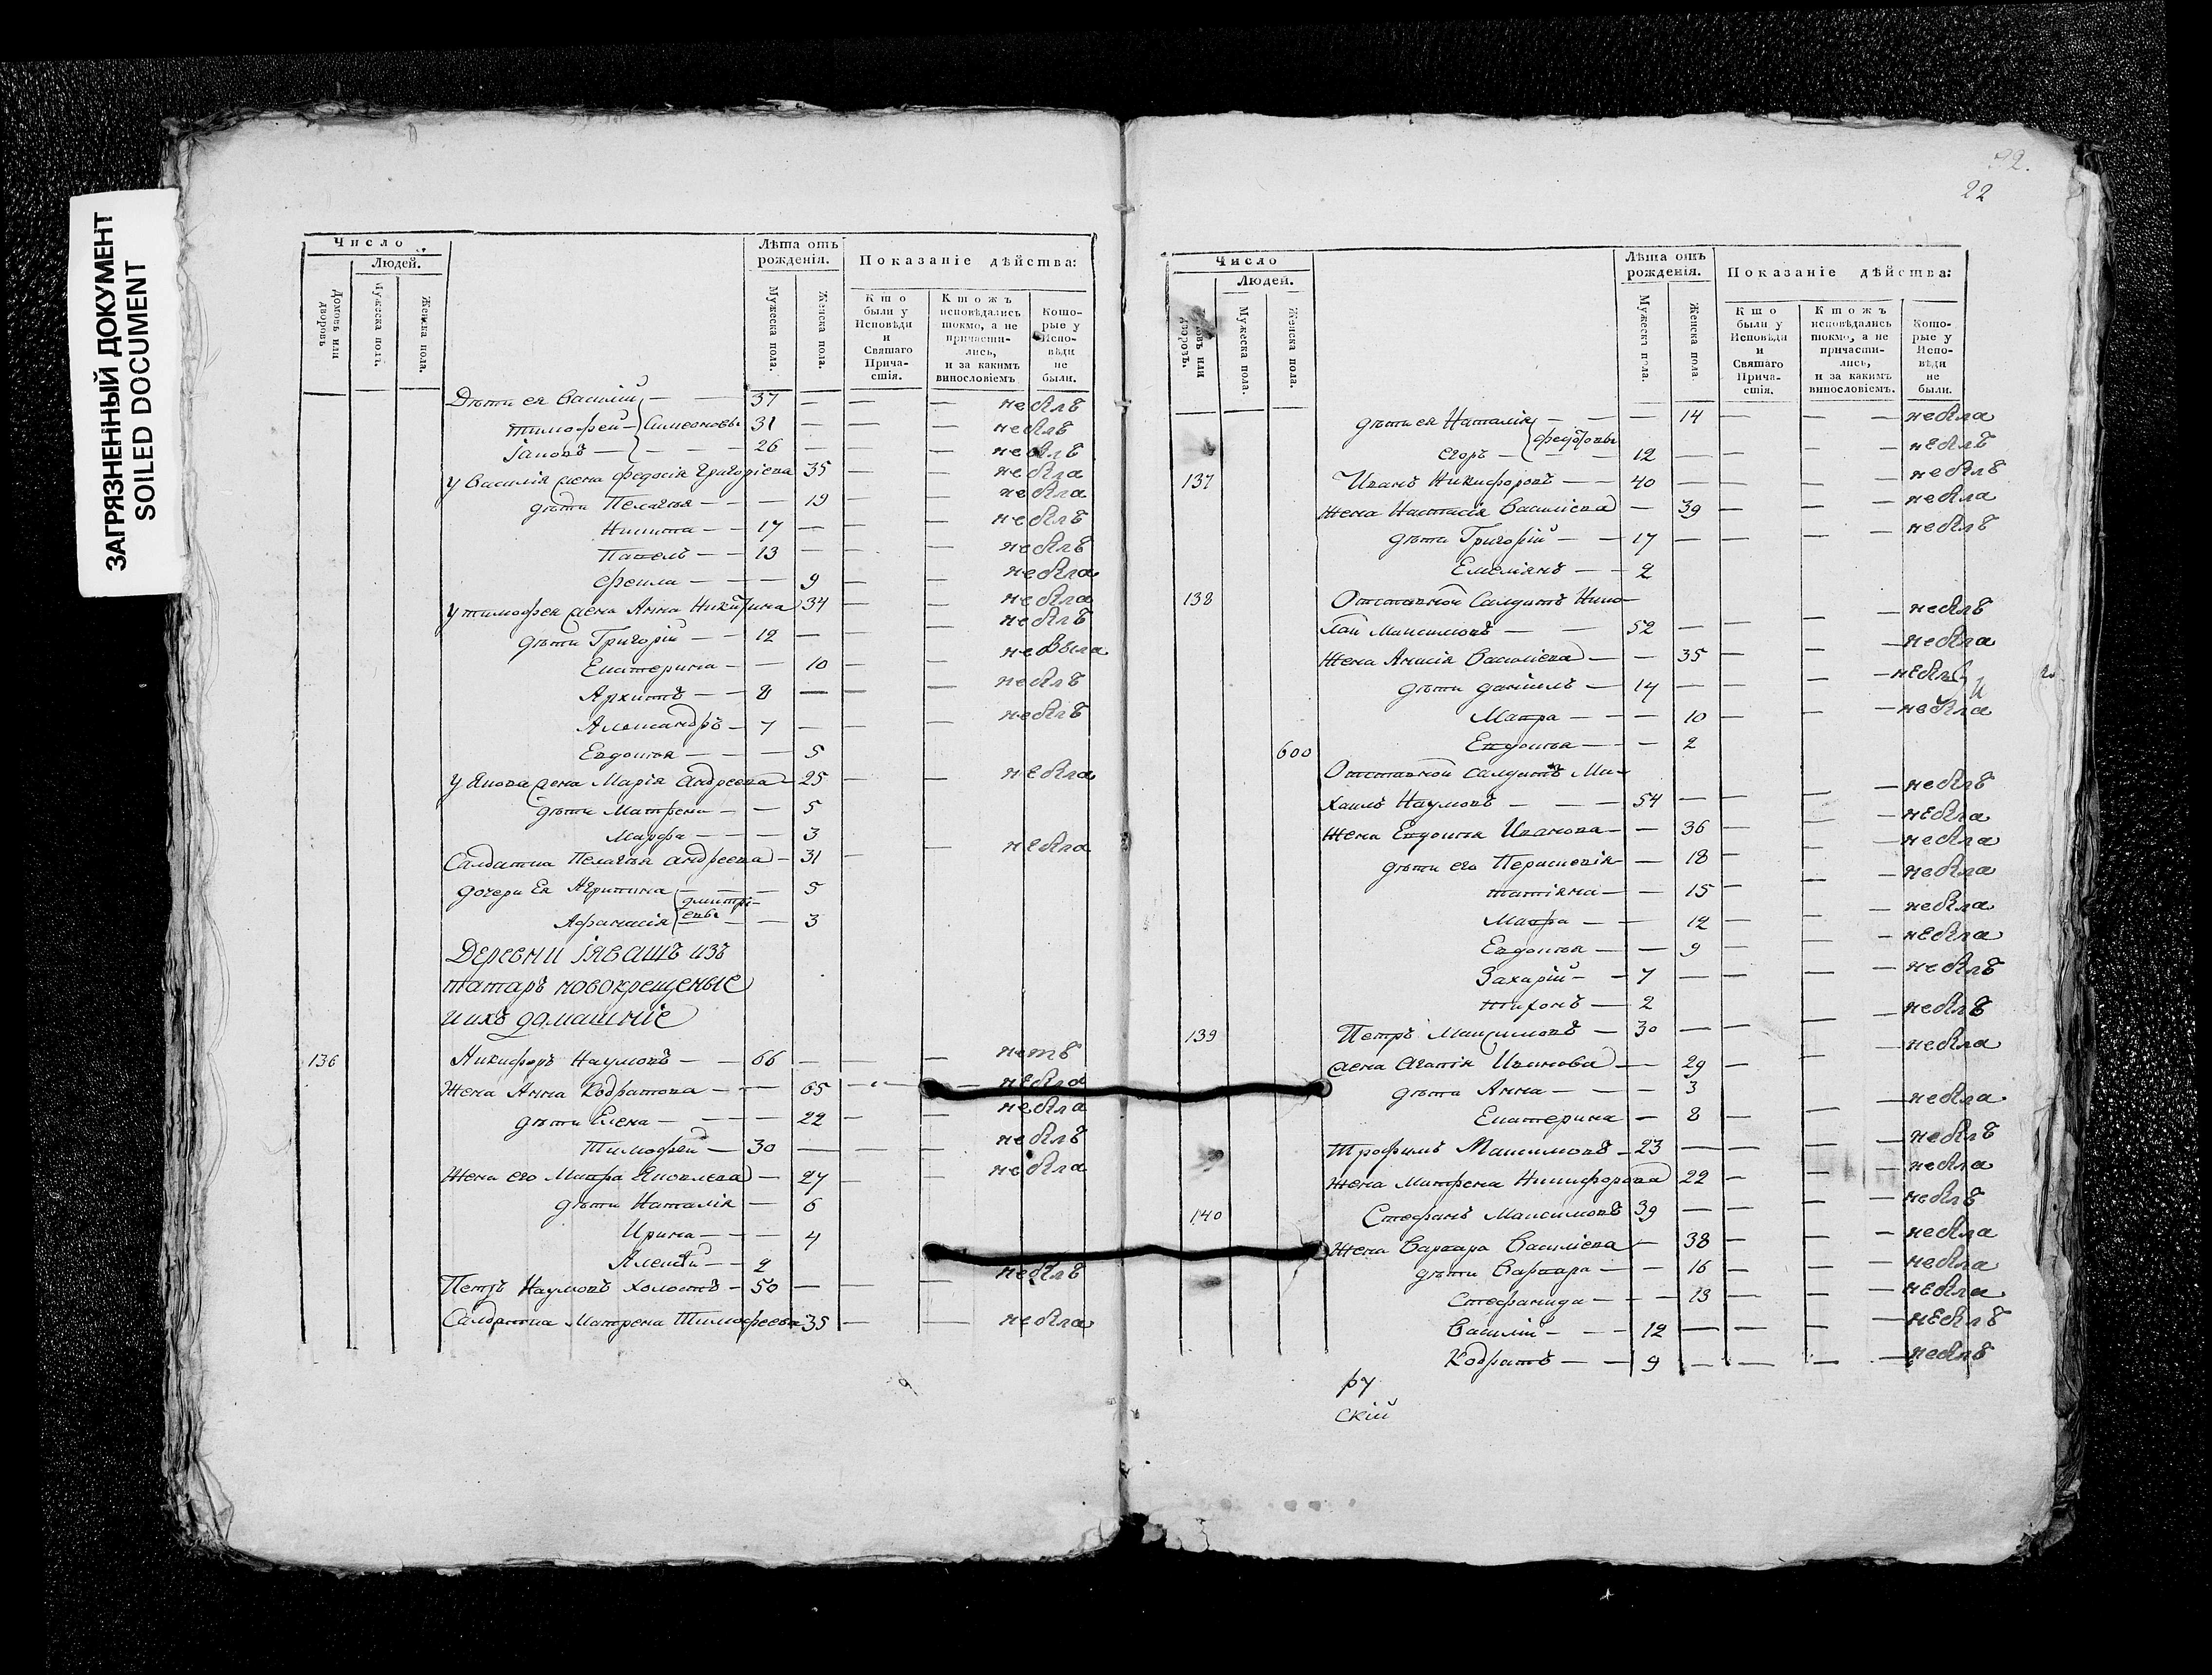 ЗАГРЯЗНЕННЫЙ ДОКУМЕНТ
SOILED DOCUMENT
Число
Людей.
Домовъ или дворовъ
Мужеска пола.
Женска пола.
Лѣта отъ рожденія.
Мужеска пола.
Женска пола.
Показаніе дѣйства:
Кто были у Исповѣди и Святаго Причастія.
Ктожъ исповѣдались токмо, а не причастились, и за какимъ винословіемъ
Которые у Исповѣди не были.
Дѣти ея Василий — — 37 — — — небылъ
Тимофей — Симеоновы 31 — — — небылъ
Iаковъ — — — 26 — — — небылъ
у Василія жена Федосія Григоріева 35 — — небыла
дѣти Пелагея — — — 19 — — небыла
Никита — — 17 — — — небылъ
Павелъ — — 13 — — — небылъ
Фекла — — — 9 — — небыла
у Тимофея жена Анна Никитина 34 — — небыла
дѣти Григорій — — 12 — — — небылъ
Екатерина — — 10 — — небыла
Архипъ — — 8 — — — небылъ
Александръ — 7 — — небылъ
Евдокея — — — 5
у Якова жена Марія Андреева — 25 — — небыла
дѣти Матрена — — 5
Марфа — — — 3
Салдатка Пелагея Андреева — 31 — — небыла
дочери Ея Агрипина — — — 5
Дмитріевы
Афанасія — — 3
Деревни Iяваш изъ
татаръ новокрещеные
и ихъ домашніе
136 Никифоръ Наумовъ — — 66 — — нетъ
жена Анна Кодратова — — 65 — — небыла
дѣти Елена — — — 22 — — небыла
Тимофей — 30 — — — небылъ
жена его Мавра Яковлева — 27 — — небыла
дѣти Наталія — 6
Ирина — — — 4
Алексѣй — — 2
Петръ Наумовъ холостъ — 50 — — — небылъ
Салдатка Матрена Тимофеева 35 — — небыла
22
Число
Людей.
Мужеска пола.
Женска пола.
Лѣта отъ рожденія.
Мужеска пола.
Женска пола.
Показаніе дѣйства:
Кто были у Исповѣди и Святаго Причастія.
Ктожъ исповѣдались токмо, а не причастились, и за какимъ винословіемъ.
Которые у Исповѣди не были.
дѣти ея Наталія — — — 14 — — — небыла
Федотовы
Егоръ — — — 12 — — — — небылъ
137 Иванъ Никифоровъ — — 40 — — — — небылъ
жена Настасія Василіева — 39 — — — небыла
дѣти Григорій — — 17 — — — — небылъ
Емеліянъ — — 2
138 Отставной Салдатъ Нико-
лай Максимовъ — — 52 — — — — небылъ
жена Анисія Василіева — — 35 — — — небыла
дѣти Данiилъ — 14 — — — — небылъ
Мавра — — — 10 — — — небыла
600 Евдокея — — 2
Отставной Салдатъ Ми-
хаилъ Наумовъ — — — 54 — — — — небылъ
жена Евдокея Иванова — — 36 — — — небыла
дѣти его Перасковія — — 18 — — — небыла
Татіяна — — 15 — — — небыла
Мавра — — 12 — — — небыла
Евдокея — — 9 — — — небыла
Захарій — — 7 — — — — небылъ
Тихонъ — 2
139 Петръ Максимовъ — 30 — — — — небылъ
жена Агапія Иванова — 29 — — — небыла
дѣти Анна — — — 3
Екатерина — 8 — — — небыла
Трофимъ Максимовъ — 23 — — — — небылъ
жена Матрена Никифорова 22 — — — небыла
140 Стефанъ Максимовъ 39 — — — — небылъ
жена Варвара Василіева — 38 — — — небыла
дѣти Варвара — — 16 — — — небыла
Стефанида — — — 13 — — — небыла
Василій — — — 12 — — — — небылъ
Кодратъ — — 9 — — — — небылъ
ру
скій